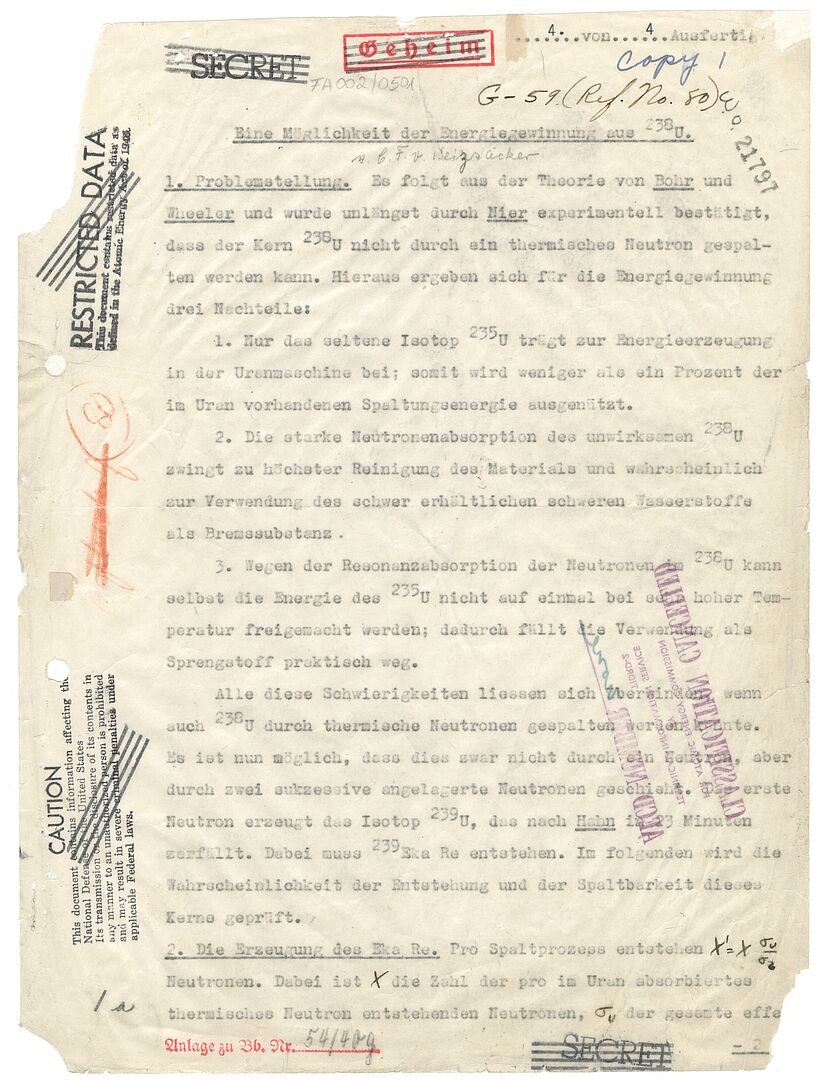 4. von 4 Ausferti
Geheim
SECRET
copy 1
FA 002/0501
G-59 (Ref. No. 80)
21797
Eine Möglichkeit der Energiegewinnung aus ²³⁸U.
v. C. F. v. Weizsäcker
1. Problemstellung. Es folgt aus der Theorie von Bohr und
Wheeler und wurde unlängst durch Nier experimentell bestätigt,
dass der Kern ²³⁸U nicht durch ein thermisches Neutron gespal-
ten werden kann. Hieraus ergeben sich für die Energiegewinnung
drei Nachteile:
1. Nur das seltene Isotop ²³⁵U trägt zur Energieerzeugung
in der Uranmaschine bei; somit wird weniger als ein Prozent der
im Uran vorhandenen Spaltungsenergie ausgenützt.
2. Die starke Neutronenabsorption des unwirksamen ²³⁸U
zwingt zu höchster Reinigung des Materials und wahrscheinlich
zur Verwendung des schwer erhältlichen schweren Wasserstoffs
als Bremssubstanz.
3. Wegen der Resonanzabsorption der Neutronen im ²³⁸U kann
selbst die Energie des ²³⁵U nicht auf einmal bei sehr hoher Tem-
peratur freigemacht werden; dadurch fällt die Verwendung als
Sprengstoff praktisch weg.
Alle diese Schwierigkeiten liessen sich wenn
auch ²³⁸U durch thermische Neutronen gespalten werden könnte.
Es ist nun möglich, dass dies zwar nicht durch ein Neutron, aber
durch zwei sukzessive angelagerte Neutronen geschieht. Das erste
Neutron erzeugt das Isotop ²³⁹U, das nach Hahn in 23 Minuten
zerfällt. Dabei muss ²³⁹Eka Re entstehen. Im folgenden wird die
Wahrscheinlichkeit der Entstehung und der Spaltbarkeit dieses
Kerns geprüft.
2. Die Erzeugung des Eka Re. Pro Spaltprozess entstehen X' = X
Neutronen. Dabei ist X die Zahl der pro im Uran absorbiertes
thermisches Neutron entstehenden Neutronen, σᵤ der gesamte effe
Anlage zu Bb. Nr. 54/40g
SECRET
- 2
1 a
RESTRICTED DATA
This document contains restricted data as
defined in the Atomic Energy Act of 1946.
80
CAUTION
This document contains information affecting the
National Defense of the United States
Its transmission or the disclosure of its contents in
any manner to an unauthorized person is prohibited
and may result in severe criminal penalties under
applicable Federal laws.
CLASSIFICATION CANCELLED
BY ATOMIC ENERGY COMMISSION
TECHNICAL INFORMATION SERVICE